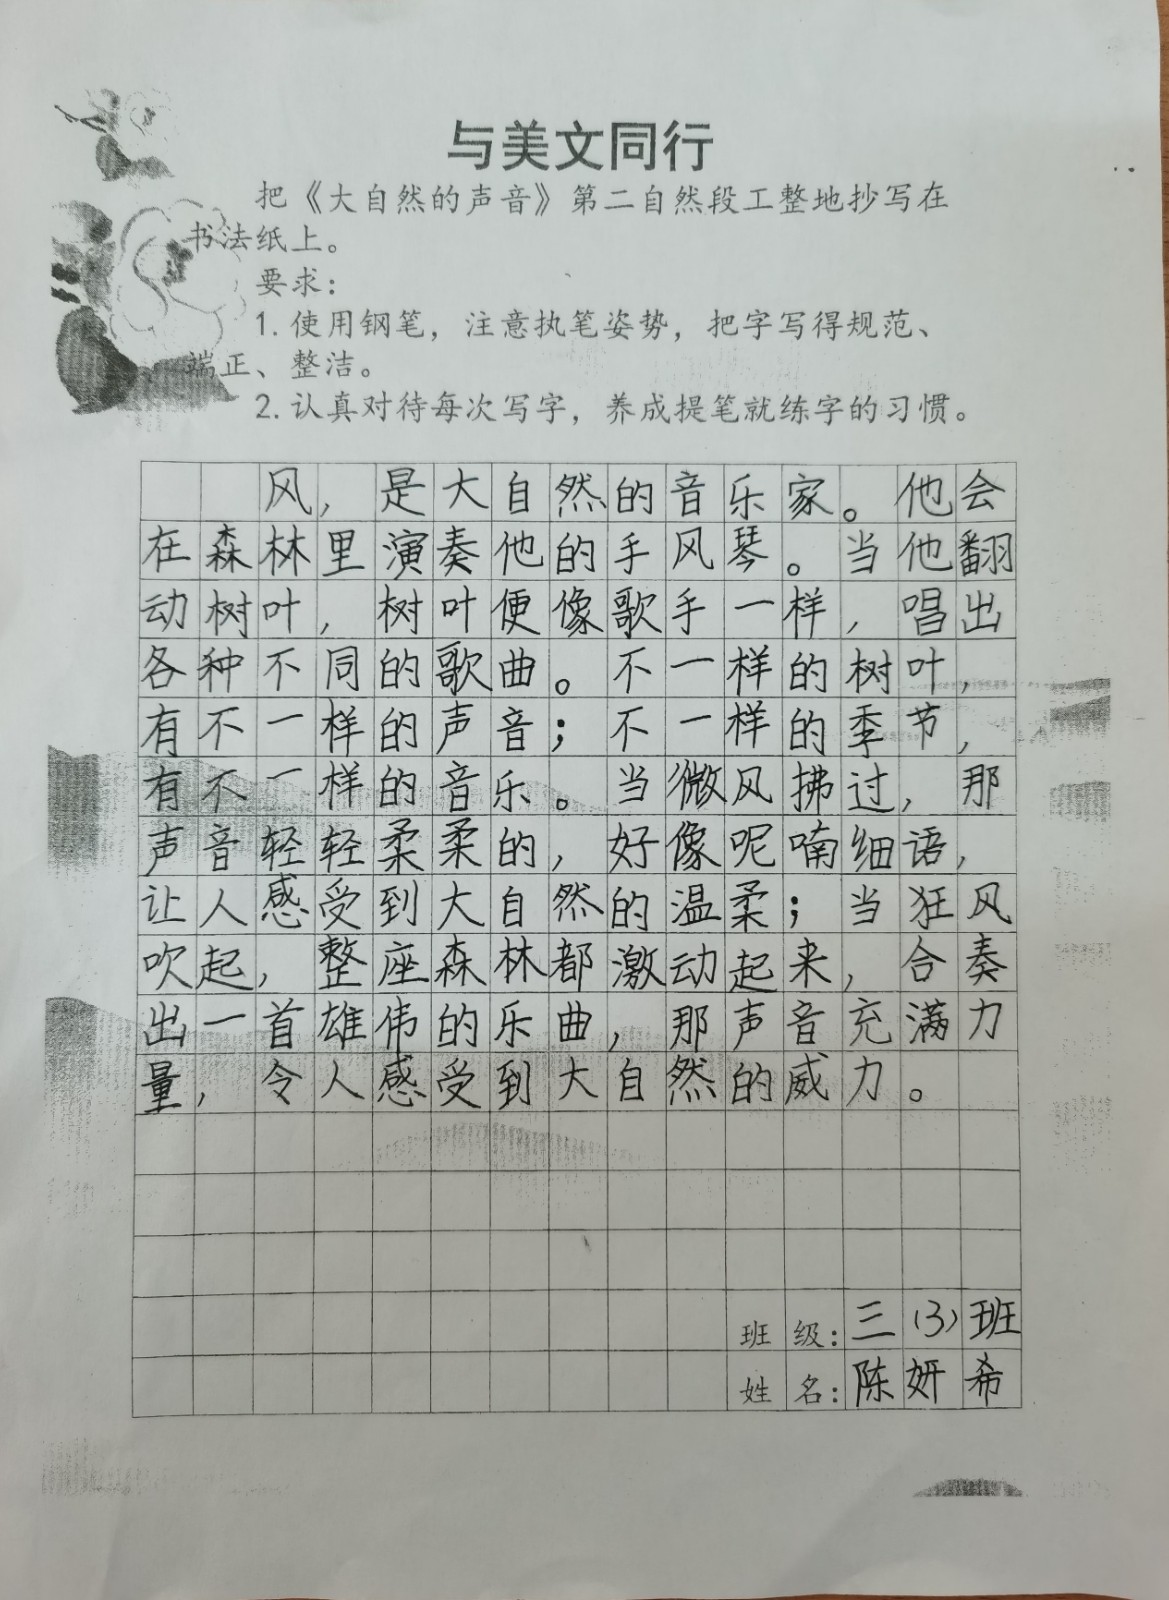 与美文同行
把《大自然的声音》第二自然段工整地抄写在
书法纸上。
要求：
1.使用钢笔，注意执笔姿势，把字写得规范、
端正、整洁。
2.认真对待每次写字，养成提笔就练字的习惯。
风，是大自然的音乐家。他会
在森林里演奏他的手风琴。当他翻
动树叶，树叶便像歌手一样，唱出
各种不同的歌曲。不一样的树叶，
有不一样的声音；不一样的季节，
有不一样的音乐。当微风拂过，那
声音轻轻柔柔的，好像呢喃细语，
让人感受到大自然的温柔；当狂风
吹起，整座森林都激动起来，合奏
出一首雄伟的乐曲，那声音充满力
量，令人感受到大自然的威力。
班级：三（3）班
姓名：陈妍希